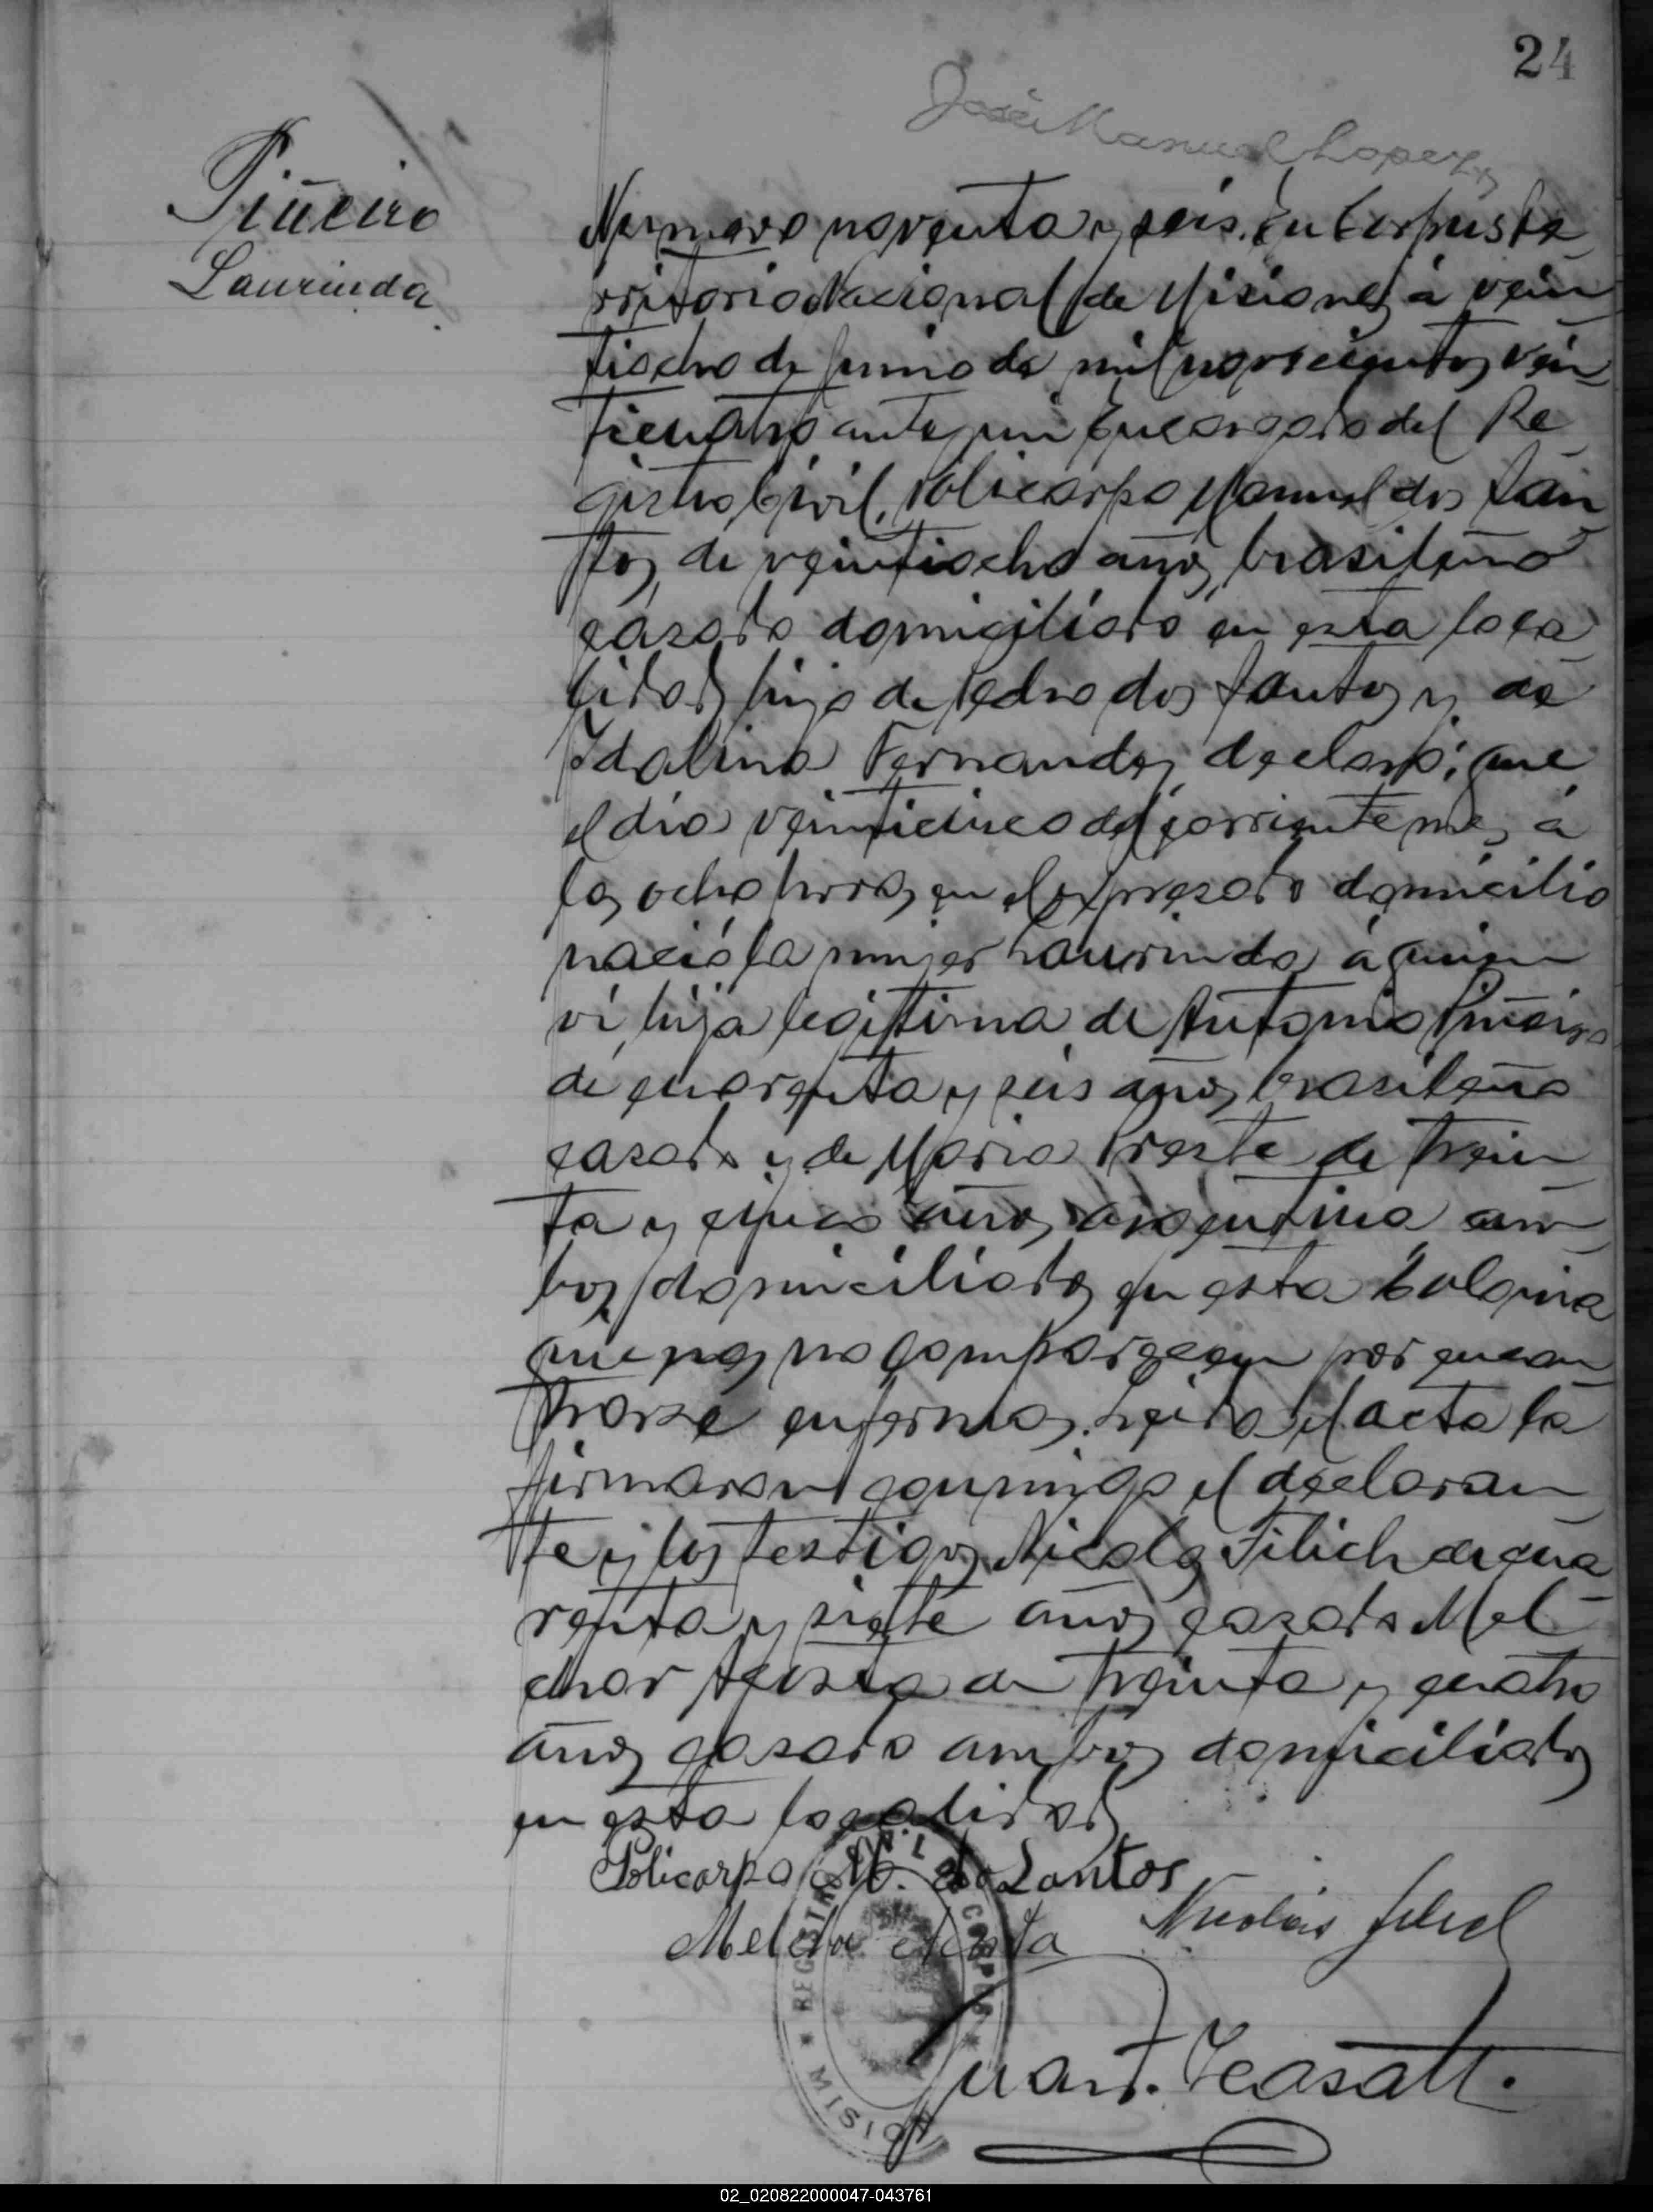 24
José Manuel Lopez
Piñeiro
Laurinda
Numero noventa y seis. En Corpus te
rritorio Nacional de Misiones á vein
tiocho de junio de mil novecientos vein
ticuatro ante mi Encargado del Re
gistro Civil, Policarpo Manuel dos San
tos, de veintiocho años, brasileño
casado domiciliado en esta loca
lidad, hijo de Pedro dos Santos y de
Idalina Fernandes, declaró: que
el dia veinticinco del corriente mes á
las ocho horas, en el expresado domicilio
nació la mujer Laurinda á quien
ví, hija legítima de Antonio Piñeiro
de cuarenta y seis años, brasileño
casado y de Maria Preste de trein
ta y cinco años, argentina am
bos domiciliados en esta Colonia
que no comparecen por encon
trarse enfermos. Leida el acta la
firmaron conmigo el declaran
te y los testigos, Nicolas Filich de cua
renta y siete años casado Mel
chor Acosta de treinta y cuatro
años casado ambos domiciliados
en esta localidad
Policarpo M. do Santos
Melchor Acosta Nicolás
REGISTRO CORPUS
MISIONES
Juan
02_020822000047-043761